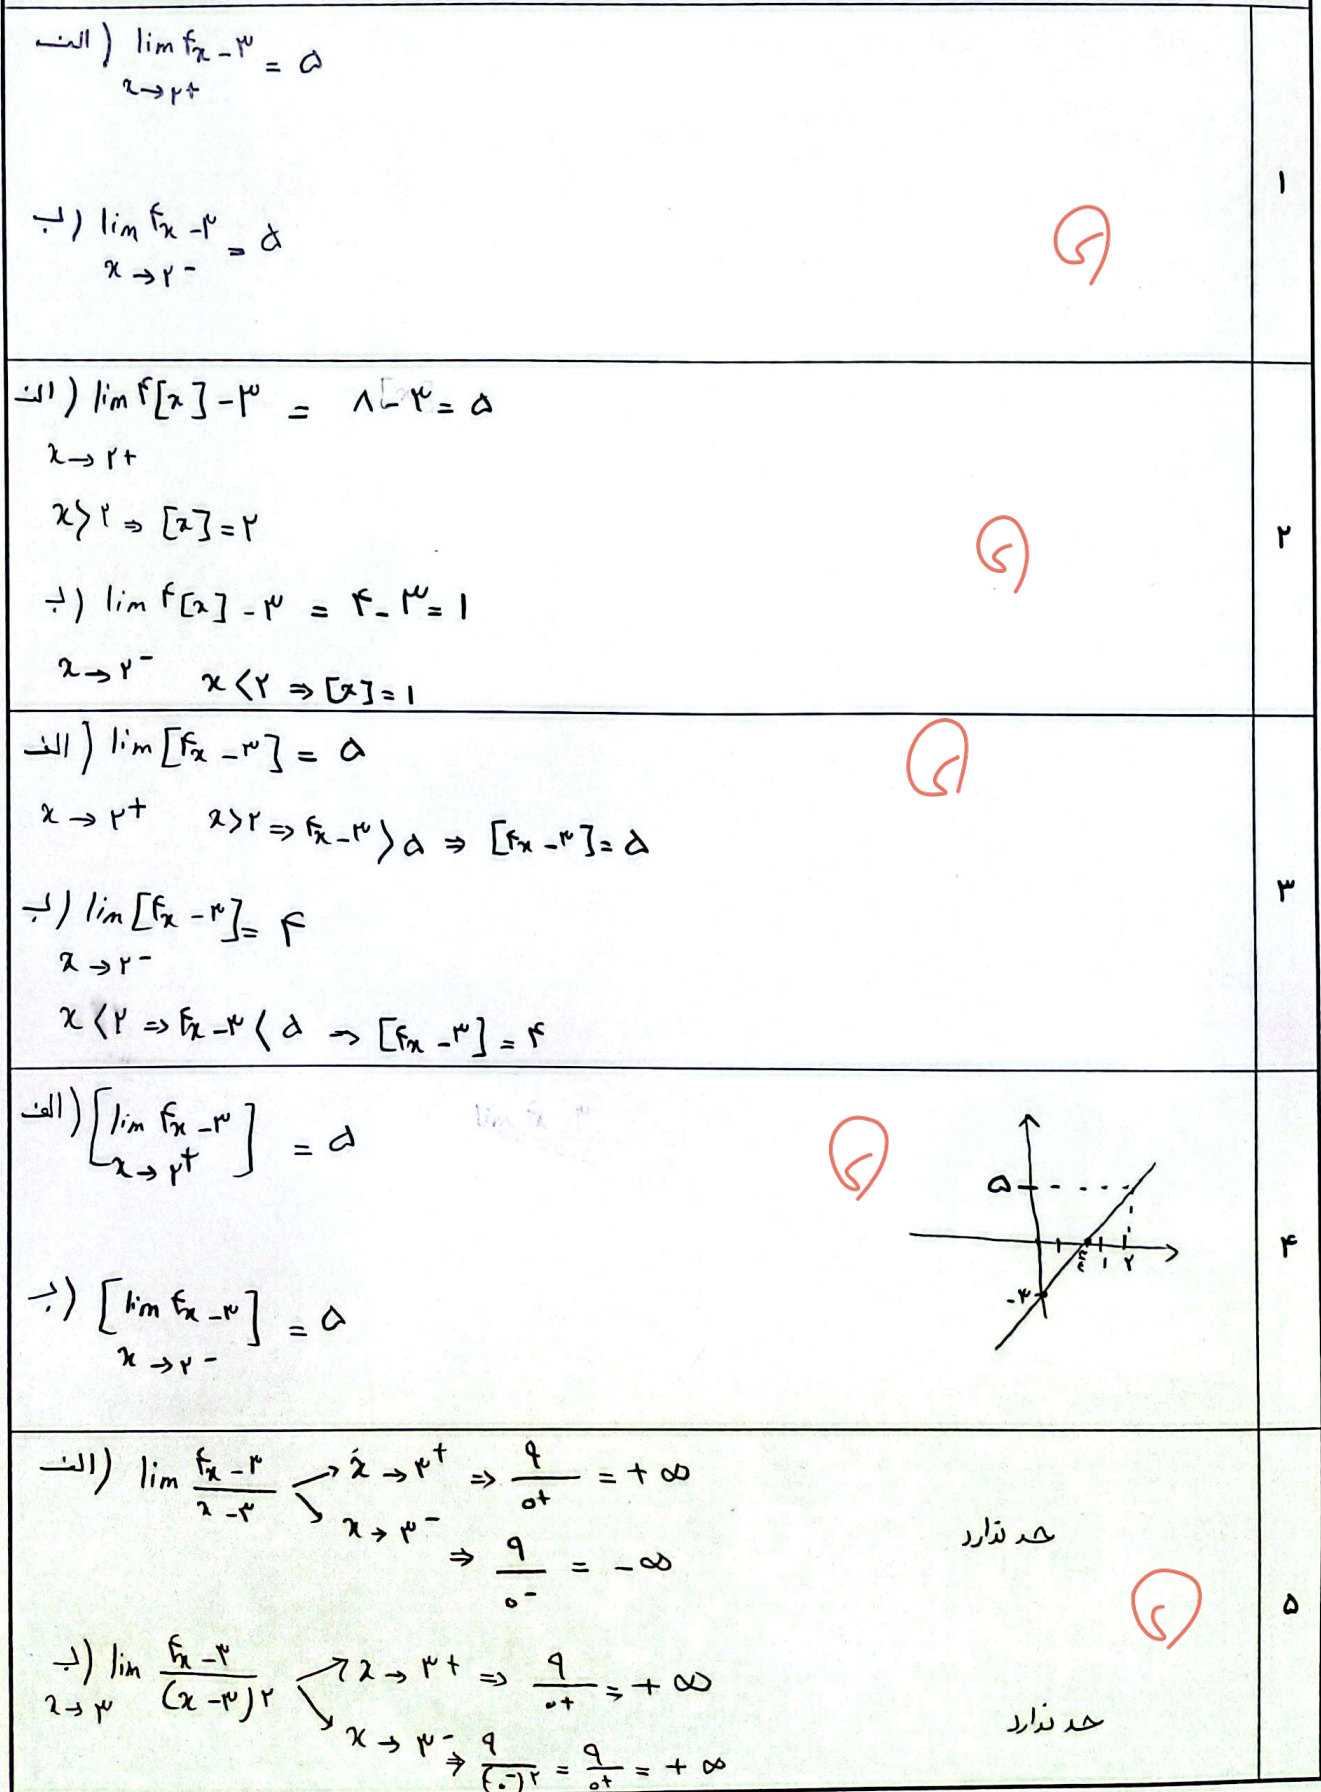 الف) lim ۴x - ۳ = ۵
x → ۲+
ب) lim ۴x - ۳ = ۵
x → ۲-
۱
الف) lim ۴[x] - ۳ = ۸ - ۳ = ۵
x → ۲+
x > ۲ ⇒ [x] = ۲
ب) lim ۴[x] - ۳ = ۴ - ۳ = ۱
x → ۲-  x < ۲ ⇒ [x] = ۱
۲
الف) lim [۴x - ۳] = ۵
x → ۲+  x > ۲ ⇒ ۴x - ۳ > ۵ ⇒ [۴x - ۳] = ۵
ب) lim [۴x - ۳] = ۴
x → ۲-
x < ۲ ⇒ ۴x - ۳ < ۵ → [۴x - ۳] = ۴
۳
الف) [lim ۴x - ۳] = ۵
x → ۲+
ب) [lim ۴x - ۳] = ۵
x → ۲-
۵
۳/۴ ۱ ۲
-۳
۴
الف) lim (۴x - ۳)/(x - ۳) → x → ۳+ ⇒ ۹/۰+ = +∞
x → ۳- ⇒ ۹/۰- = -∞
حد ندارد
ب) lim (۴x - ۳)/(x - ۳)۲ → x → ۳+ ⇒ ۹/۰+ = +∞
x → ۳
x → ۳- ⇒ ۹/(۰-)۲ = ۹/۰+ = +∞
حد ندارد
۵